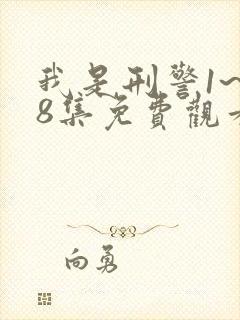 我是刑警1~
8集免費觀
向勇